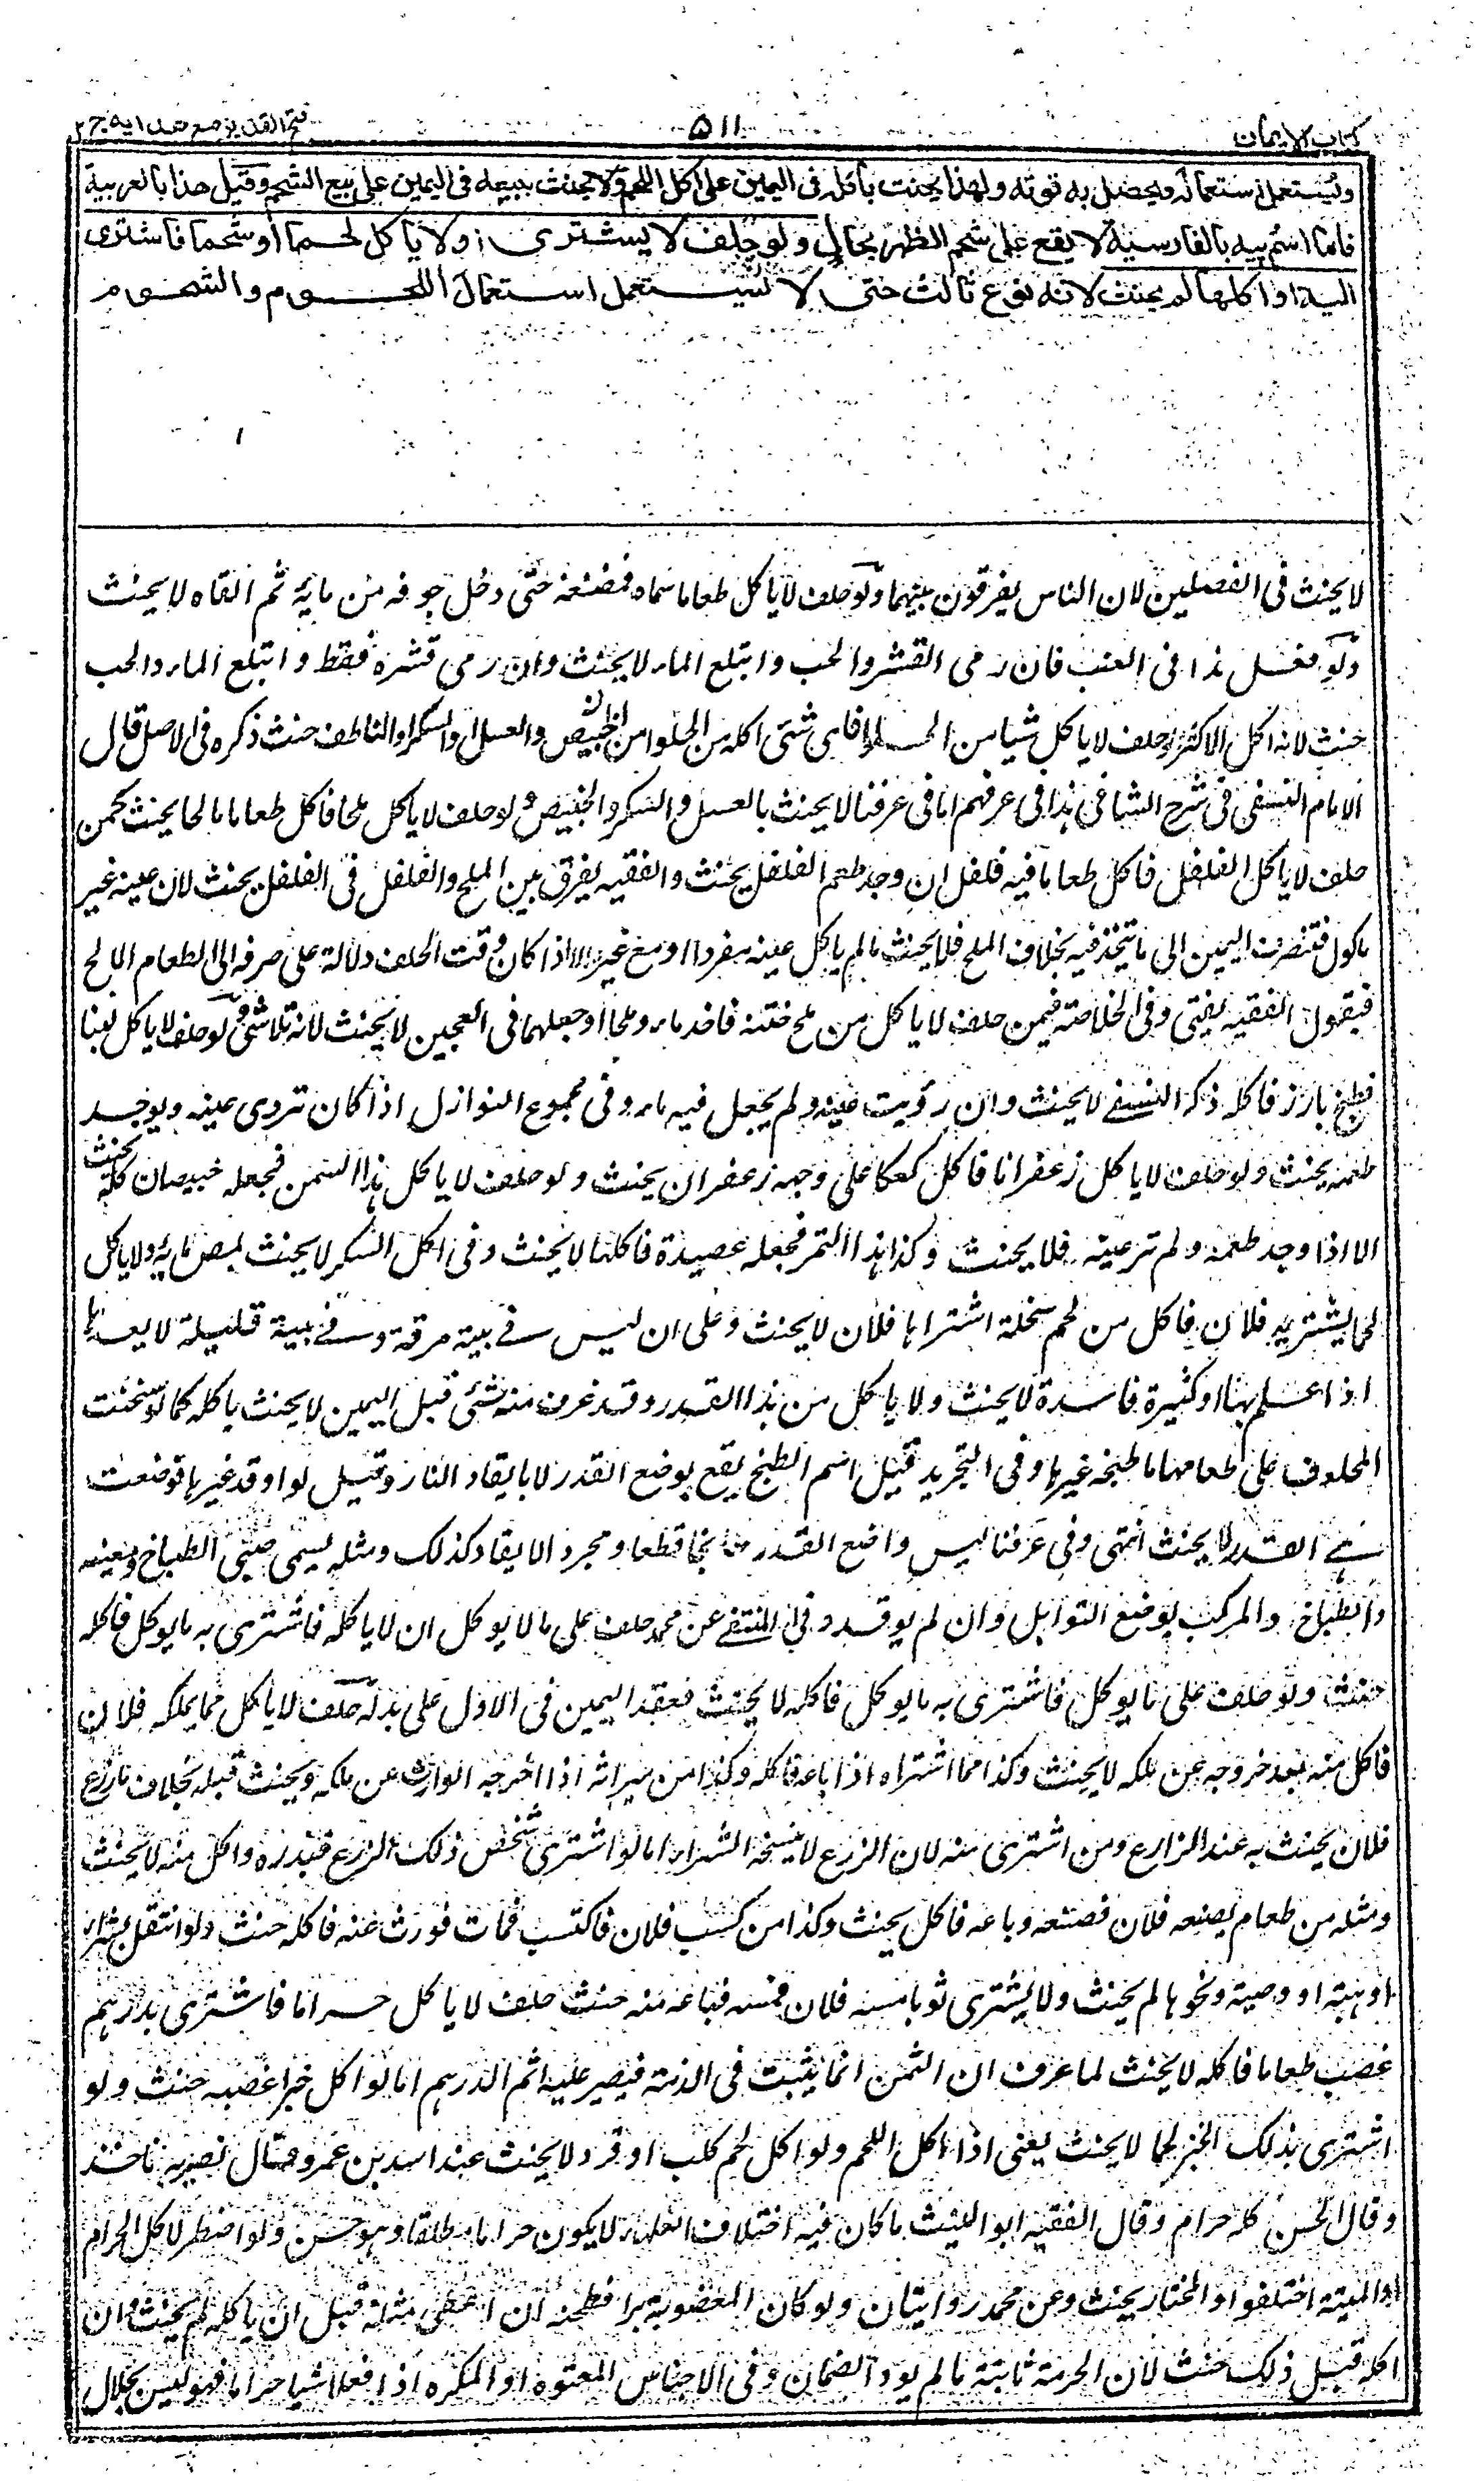 كتاب الايمان
٥١١
فتح القدير مع هدايه ج ٢
ويستعمل استعماله ويحصل به قوته ولهذا يحنث باكله فى اليمين على اكل اللحم ولا يحنث ببيعه فى اليمين على بيع الشحم وقيل هذا بالعربية
فاما اسم پيه بالفارسية لا يقع على شحم الظهر بحال ولو حلف لا يشترى او لا ياكل لحما أو شحما فاشترى
الية او اكلها لم يحنث لانه نوع ثالث حتى لا يستعمل استعمال اللحوم والشحوم
لا يحنث فى الفصلين لان الناس يفرقون بينهما ولو حلف لا ياكل طعاما سماه فمضغه حتى دخل جوفه من مائه ثم القاه لا يحنث
ولو فعل هذا فى العنب فان رمى القشر والحب وابتلع الماء لا يحنث وان رمى قشره فقط وابتلع الماء والحب
حنث لانه اكل الاكثر ولو حلف لا ياكل شيا من الحلوا فاى شئ اكله من الحلوا من الخبيص والعسل والسكر والناطف حنث ذكره فى الاصل قال
الامام النسفى فى شرح الشافى هذا فى عرفهم اما فى عرفنا لا يحنث بالعسل والسكر والخبيص ولو حلف لا ياكل ملحا فاكل طعاما مالحا يحنث كمن
حلف لا ياكل الفلفل فاكل طعاما فيه فلفل ان وجد طعم الفلفل يحنث والفقيه يفرق بين الملح والفلفل فى الفلفل يحنث لان عينه غير
ماكول فتنصرف اليمين الى ما يتخذ فيه بخلاف الملح فلا يحنث ما لم ياكل عينه مفردا او مع غيره الا اذا كان وقت الحلف دلالة على صرفه الى الطعام المالح
فبقول الفقيه يفتى وفى الخلاصة فيمن حلف لا ياكل من ملح ختنه فاخذ ماء وملحا وجعلهما فى العجين لا يحنث لانه تلاشى ولو حلف لا ياكل لبنا
فطبخ بارز فاكله ذكر النسفى لا يحنث وان رؤيت عينه ولم يجعل فيه ماء وفى مجموع النوازل اذا كان تروى عينه ويوجد
طعمه يحنث ولو حلف لا ياكل زعفرانا فاكل كعكا على وجهه زعفران يحنث ولو حلف لا ياكل هذا السمن فجعله خبيصا فاكله يحنث
الا اذا وجد طعمه ولم تر عينه فلا يحنث وكذا هذا التمر فجعله عصيدة فاكلها لا يحنث وفى اكل السكر لا يحنث بمص مائه ولا ياكل
لحما يشتريه فلان فاكل من لحم سخلة اشتراها فلان لا يحنث وعلى ان ليس فى بيته مرقة وفى بيته قليلة لا يعدها
اذا علم بها او كثيرة فاسدة لا يحنث ولا ياكل من هذا القدر وقد غرف منه شئ قبل اليمين لا يحنث باكله كما لو سخنت
المحلوف على طعامها ما طبخه غيرها وفى التجريد قيل اسم الطبخ يقع بوضع القدر لا بايقاد النار وقيل لو اوقد غيرها فوضعت
هى القدر لا يحنث انتهى وفى عرفنا ليس واضع القدر طابخا قطعا ومجرد الايقاد كذلك ومثله يسمى صبى الطباخ ومعينه
والطباخ والمركب بوضع التوابل وان لم يوقد وفى المنتقى عن محمد حلف على ما لا يوكل ان لا ياكله فاشترى به ما يوكل فاكله
حنث ولو حلف على ما يوكل فاشترى به ما يوكل فاكله لا يحنث فعقد اليمين فى الاول على بدله حلف لا ياكل مما يملكه فلان
فاكل منه بعد خروجه عن ملكه لا يحنث وكذا مما اشتراه اذا باعه فاكله وكذا من ميراثه اذا اخرجه الوارث عن ملكه ويحنث قبله بخلاف ما زرع
فلان يحنث به عند الزارع ومن اشترى منه لان الزرع لا ينسخه الشراء اما لو اشترى شخص ذلك الزرع فبذره واكل منه لا يحنث
ومثله من طعام يصنعه فلان فصنعه وباعه فاكل يحنث وكذا من كسب فلان فاكتسب فمات فورث عنه فاكله حنث ولو انتقل بشراء
او هبة او وصية ونحوها لم يحنث ولا يشترى ثوبا مسه فلان فمسه فباعه منه حنث حلف لا ياكل حراما فاشترى بدرهم
غصب طعاما فاكله لا يحنث لما عرف ان الثمن انما يثبت فى الذمة فيصير عليه اثم الدرهم اما لو اكل خبزا غصبه حنث ولو
اشترى بذلك الخبز لحما لا يحنث يعنى اذا اكل اللحم ولو اكل لحم كلب او قرد لا يحنث عند اسد بن عمرو وقال نصير به ناخذ
وقال الحسن كله حرام وقال الفقيه ابو الليث ما كان فيه اختلاف العلماء لا يكون حراما مطلقا وهو حسن ولو اضطر لاكل الحرام
او الميتة اختلفوا والمختار يحنث وعن محمد روايتان ولو كان المغضوبة برا فطحنه ان اعطى مثله قبل ان ياكله لم يحنث وان
اكله قبل ذلك حنث لان الحرمة ثابتة ما لم يود الضمان وفى الاجناس المعتوه او المكره اذا فعلا شيا حراما فهو ليس بحلال